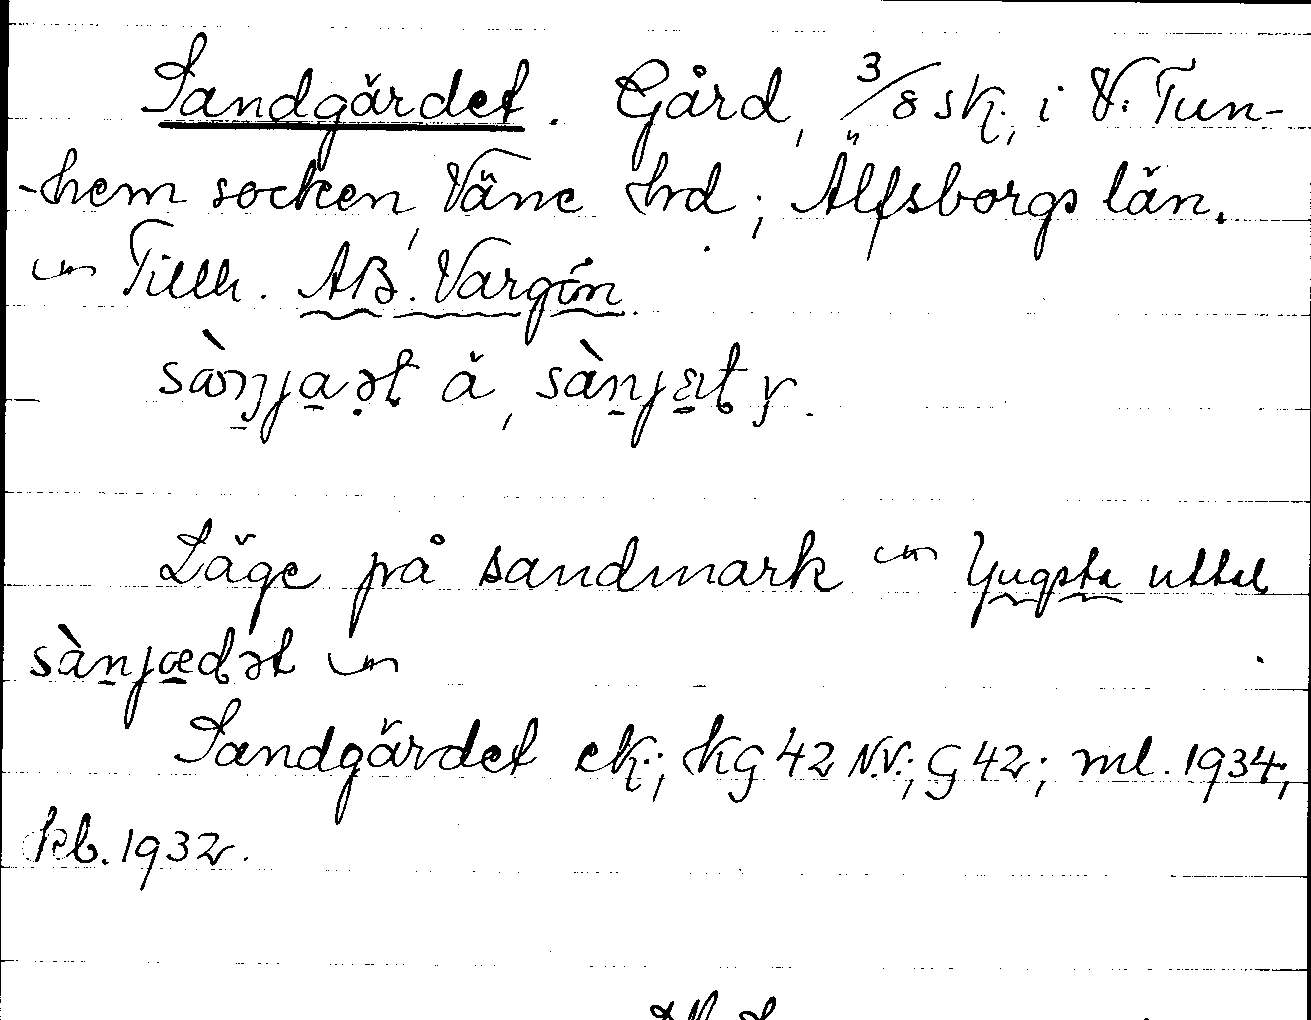 Sandgärdet. Gård, 3/8 sk., i V. Tun-
-hem socken, Väne hd; Älfsborgs län.
Tillh. AB. Vargön.
sàn̠ja̠ət ä, sàn̠jæ̠t y.
Läge på sandmark Yngsta uttal
sàn̠jæ̠dət
Sandgärdet ek.; hg 42 N.V.; G 42; ml. 1934;
kb. 1932.